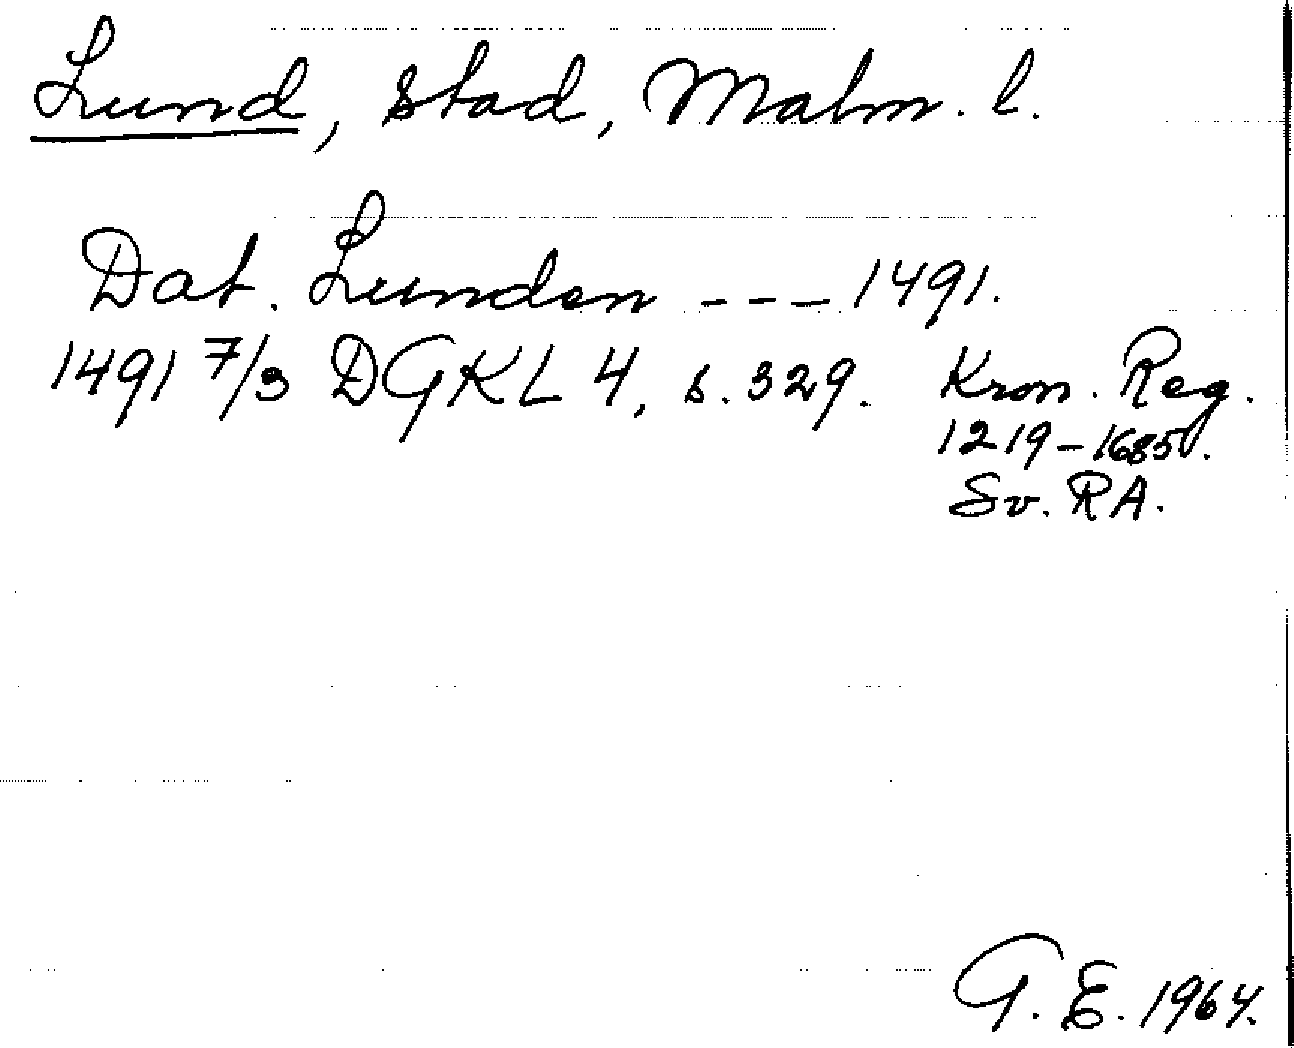 Lund, stad, Malm. l.
Dat. Lunden --- 1491.
1491 7/3 DGKL 4, s. 329. Kron. Reg.
1219-1685.
Sv. RA.
G. E. 1964.